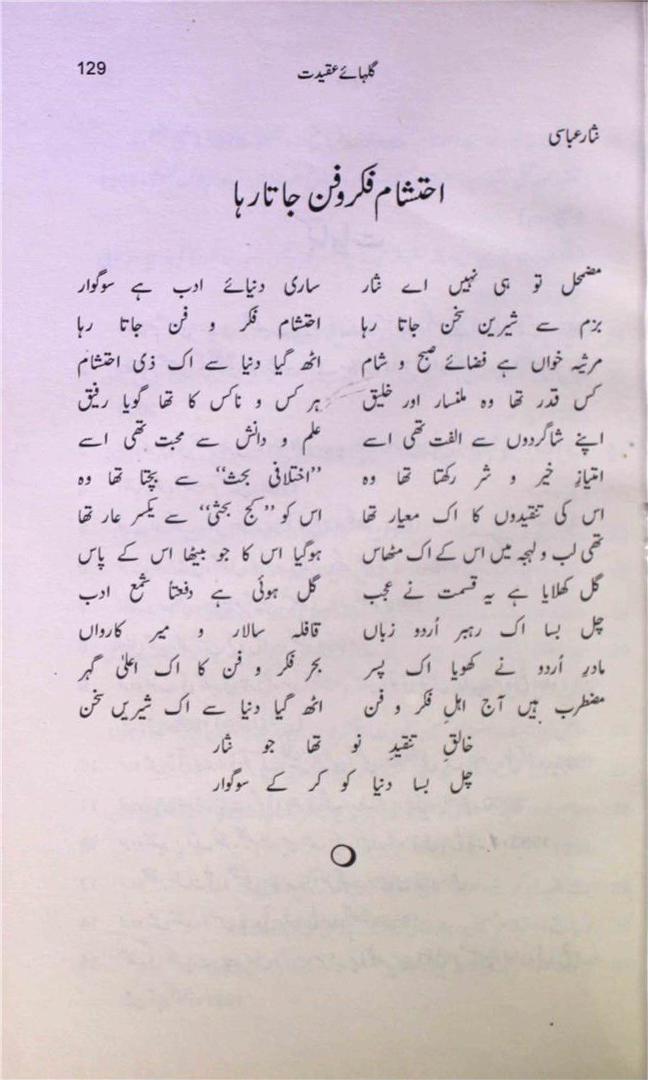 129 گلہائے عقیدت
نثار عباسی
احتشام فکر و فن جاتا رہا
مضمحل تو ہی نہیں اے نثار ساری دنیائے ادب ہے سوگوار
بزم سے شیرین سخن جاتا رہا احتشام فکر و فن جاتا رہا
مرثیہ خواں ہے فضائے صبح و شام اٹھ گیا دنیا سے اک ذی احتشام
کس قدر تھا وہ ملنسار اور خلیق ہر کس و ناکس کا تھا گویا رفیق
اپنے شاگردوں سے الفت تھی اسے علم و دانش سے محبت تھی اسے
امتیازِ خیر و شر رکھتا تھا وہ ”اختلافی بحث“ سے بچتا تھا وہ
اس کی تنقیدوں کا اک معیار تھا اس کو ”کج بحثی“ سے یکسر عار تھا
تھی لب و لہجہ میں اس کے اک مٹھاس ہوگیا اس کا جو بیٹھا اس کے پاس
گل کھلایا ہے یہ قسمت نے عجب گل ہوئی ہے دفعتاً شمع ادب
چل بسا اک رہبر اُردو زباں قافلہ سالار و میر کارواں
مادرِ اُردو نے کھویا اک پسر بحر فکر و فن کا اک اعلیٰ گہر
مضطرب ہیں آج اہلِ فکر و فن اٹھ گیا دنیا سے اک شیریں سخن
خالقِ تنقیدِ نو تھا جو نثار
چل بسا دنیا کو کر کے سوگوار